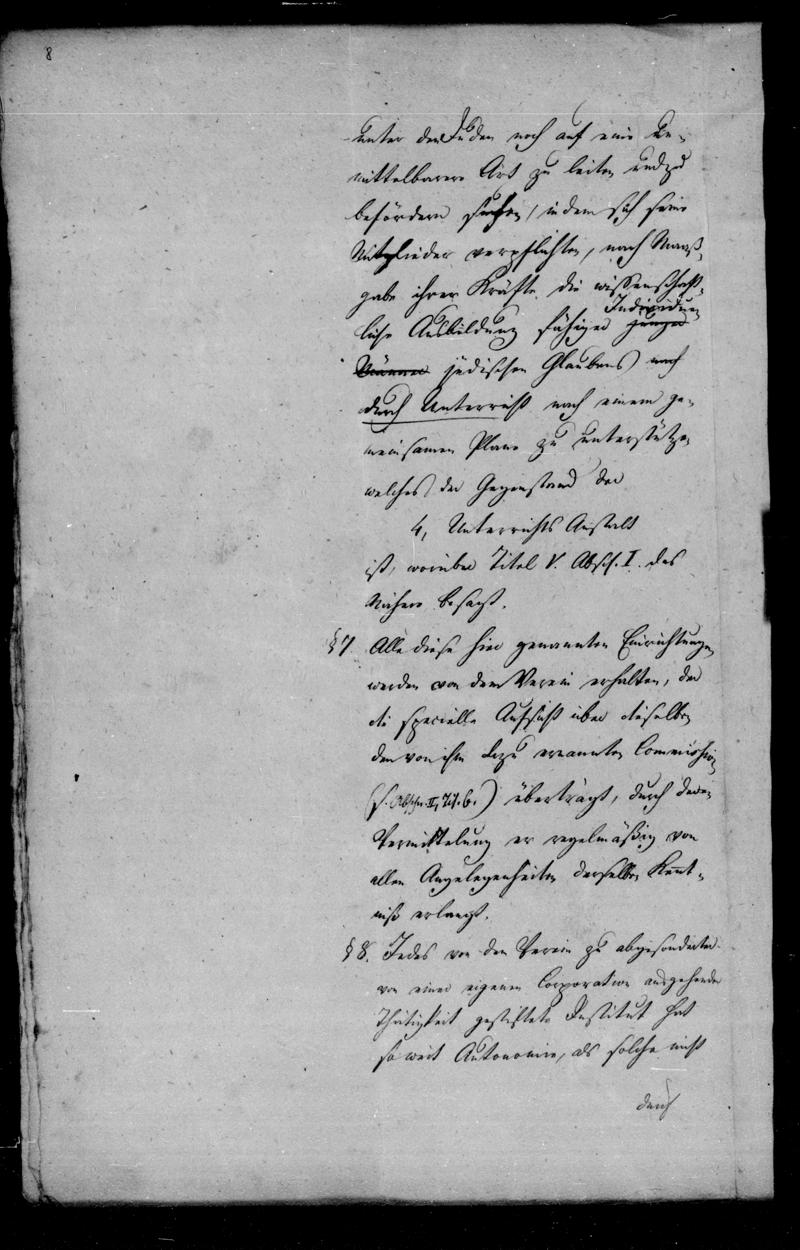 8
unter den Juden noch auf eine un-
mittelbarere Art zu leiten und zu
befördern suchen, indem sich seine
Mitglieder verpflichten, nach Maaß-
gabe ihrer Kräfte die wissenschaft-
Individuen
liche Ausbildung fähiger junger
Männer jüdischen Glaubens auch
durch Unterricht nach einem ge-
meinsamen Plane zu unterstützen
welches der Gegenstand der
4, Unterrichts Anstalt
ist, worüber Titel V. Absch. I. das
Nähere besagt.
§ 7. Alle diese hier genannten Einrichtungen
werden von dem Verein erhalten, der
die specielle Aufsicht über dieselben
den von ihm dazu ernannten Commissionen
(s. Abschn. II, Tit. 6.) überträgt, durch deren
Vermittelung er regelmäßig von
allen Angelegenheiten derselben Kennt-
niß erlangt.
§ 8. Jedes von dem Verein zu abgesonderter
von einer eigenen Corporation ausgehender
Thätigkeit gestiftete Institut hat
so weit Autonomie, als solche nicht
durch